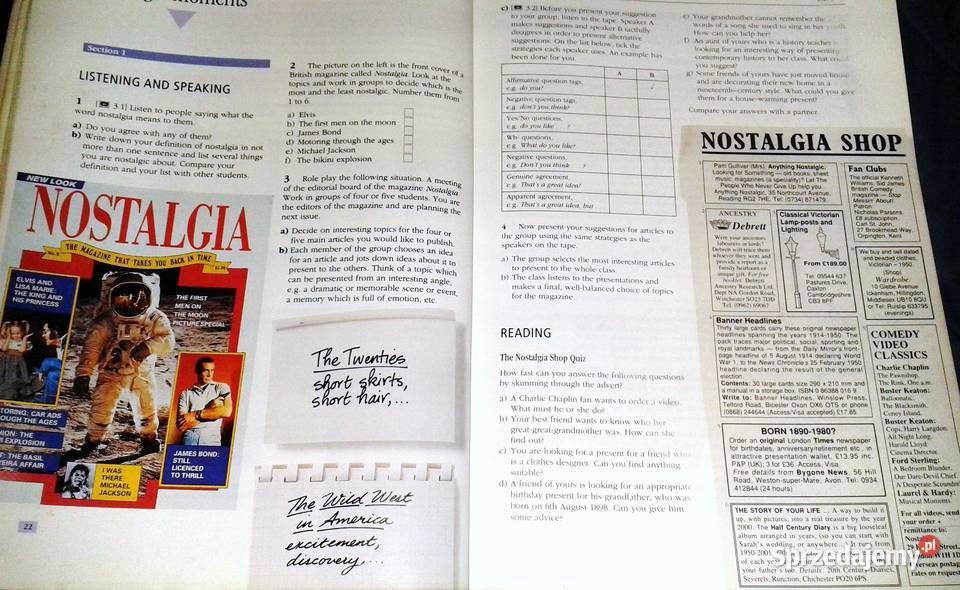 Section 1
LISTENING AND SPEAKING
1 [ 3.1] Listen to people saying what the
word nostalgia means to them.
a) Do you agree with any of them?
b) Write down your definition of nostalgia in not
more than one sentence and list several things
you are nostalgic about. Compare your
definition and your list with other students.
NEW LOOK
NOSTALGIA
THE MAGAZINE THAT TAKES YOU BACK IN TIME
ELVIS AND
LISA MARIE:
THE KING AND
HIS PRINCESS
THE FIRST
MEN ON
THE MOON
PICTURE SPECIAL
CAR ADS
THROUGH THE AGES
THE
EXPLOSION
THE BASIL
AFFAIR
I WAS
THERE
MICHAEL
JACKSON
JAMES BOND:
STILL
LICENCED
TO THRILL
22
2 The picture on the left is the front cover of a
British magazine called Nostalgia. Look at the
topics and work in groups to decide which is the
most and the least nostalgic. Number them from
1 to 6.
a) Elvis
b) The first men on the moon
c) James Bond
d) Motoring through the ages
e) Michael Jackson
f) The bikini explosion
3 Role play the following situation. A meeting
of the editorial board of the magazine Nostalgia.
Work in groups of four or five students. You are
the editors of the magazine and are planning the
next issue.
a) Decide on interesting topics for the four or
five main articles you would like to publish.
b) Each member of the group chooses an idea
for an article and jots down ideas about it to
present to the others. Think of a topic which
can be presented from an interesting angle,
e.g. a dramatic or memorable scene or event,
a memory which is full of emotion, etc.
The Twenties
short skirts,
short hair,...
The Wild West
in America
excitement,
discovery,...
c) [ 3.2] Before you present your suggestion
to your group, listen to the tape. Speaker A
makes suggestions and speaker B tactfully
disagrees in order to present alternative
suggestions. On the list below, tick the
strategies each speaker uses. An example has
been done for you.
A B
Affirmative question tags,
e.g. do you? ✓
Negative question tags,
e.g. don't you think?
Yes/No questions,
e.g. do you like . . ?
Wh- questions,
e.g. What do you like?
Negative questions,
e.g. Don't you think ?
Genuine agreement,
e.g. That's a great idea!
Apparent agreement,
e.g. That's a great idea, but
4 Now present your suggestions for articles to
the group using the same strategies as the
speakers on the tape.
a) The group selects the most interesting articles
to present to the whole class
b) The class listens to the presentations and
makes a final, well-balanced choice of topics
for the magazine
READING
The Nostalgia Shop Quiz
How fast can you answer the following questions
by skimming through the advert?
a) A Charlie Chaplin fan wants to order a video.
What must he or she do?
b) Your best friend wants to know who her
great-great-grandmother was. How can she
find out?
c) You are looking for a present for a friend who
is a clothes designer. Can you find anything
suitable?
d) A friend of yours is looking for an appropriate
birthday present for his grandfather, who was
born on 6th August 1898. Can you give him
some advice?
e) Your grandmother cannot remember the
words of a song she used to sing in her youth.
How can you help her?
f) An aunt of yours who is a history teacher is
looking for an interesting way of presenting
contemporary history to her class. What could
you suggest?
g) Some friends of yours have just moved house
and are decorating their new home in a
nineteenth-century style. What could you give
them for a house-warming present?
Compare your answers with a partner.
NOSTALGIA SHOP
Pam Gulliver (Mrs). Anything Nostalgic.
Looking for Something — old books, sheet
music, magazines (a speciality)? Let The
People Who Never Give Up help you.
Anything Nostalgic, 35 Northcourt Avenue,
Reading RG2 7HE. Tel: (0734) 871479.
Fan Clubs
The official Kenneth
Williams, Sid James
British Comedy
magazine — Stop
Messin' About!
Patron
Nicholas Parsons.
£8 subscription.
Carl St. John,
27 Brookmead Way,
Orpington, Kent
ANCESTRY
Debrett
Were your ancestors
labourers or lords?
Debrett will trace them
whoever they were and
provide a report as a
family heirloom or
unique gift. For free
booklet: Debrett
Ancestry Research Ltd.
Dept NA Gordon Road,
Winchester SO23 7DD
Tel: (0962) 69067
Classical Victorian
Lamp-posts and
Lighting
From £189.00
Tel: 09544 637
Pastures Drive,
Caxton
Cambridgeshire
CB3 8PF
We buy and sell dated
and beaded clothes,
Victorian – 1950
(Shop)
Wardrobe
10 Glebe Avenue
Ickenham, Hillingdon,
Middlesex UB10 8QU
or Tel: Ruislip 633795
(evenings)
Banner Headlines
Thirty large cards carry these original newspaper
headlines spanning the years 1914-1950. The
pack traces major political, social, sporting and
royal landmarks — from the Daily Mirror's front-
page headline of 5 August 1914 declaring World
War 1, to the News Chronicle's 25 February 1950
headline declaring the result of the general
election.
Contents: 30 large cards size 290 x 210 mm and
a manual in a storage box. ISBN 0 86388 016 9
Write to: Banner Headlines, Winslow Press,
Telford Road, Bicester Oxon OX6 OTS or phone
(0868) 244644 (Access/Visa accepted) £17.85
COMEDY
VIDEO
CLASSICS
Charlie Chaplin
The Pawnshop,
The Rink, One a.m.
Buster Keaton:
Balloonatic,
The Blacksmith,
Coney Island.
Buster Keaton:
Cops, Harry Langdon,
All Night Long,
Harold Lloyd
Cinema Director.
Ford Sterling:
A Bedroom Blunder,
Our Dare-Devil Chief,
A Desperate Scoundrel
Laurel & Hardy:
Musical Moments.
For all videos, send
your order +
remittance to:
BORN 1890-1980?
Order an original London Times newspaper
for birthdays, anniversary/retirement etc. in
attractive presentation wallet, £13.95 inc.
P&P (UK); 3 for £36. Access, Visa.
Free details from Bygone News, 56 Hill
Road, Weston-super-Mare, Avon. Tel: 0934
412844 (24 hours)
THE STORY OF YOUR LIFE ... A way to build it
up, with pictures, into a real treasure by the year
2000. The Half Century Diary is a big looseleaf
album arranged in years, (so you can start with
Sarah's wedding, or anywhere
1950-2001
of each year
your father's too. Details: 20th Century Diaries,
Severels, Runction, Chichester PO20 6PS.
Sprzedajemy.pl